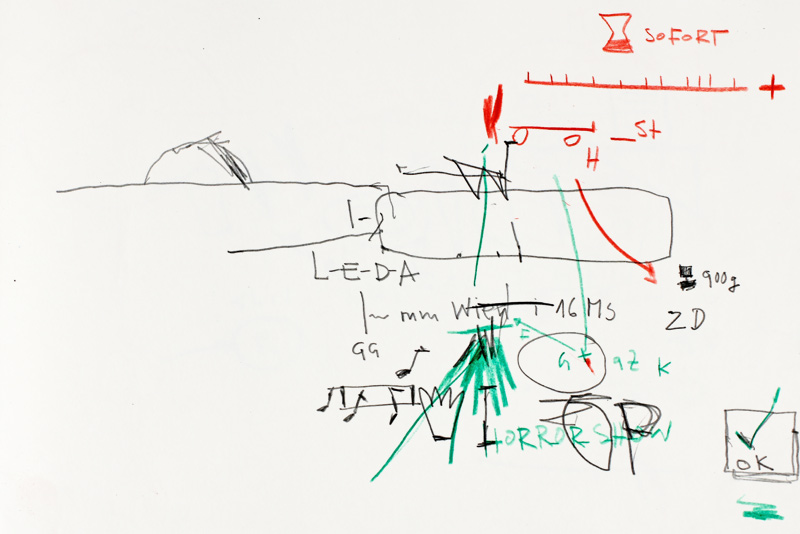 SOFORT
+
St
H
L-E-D-A
900g
Wien 16 MS
ZD
GG
E
G + aZ K
HORRORSHOW
OK